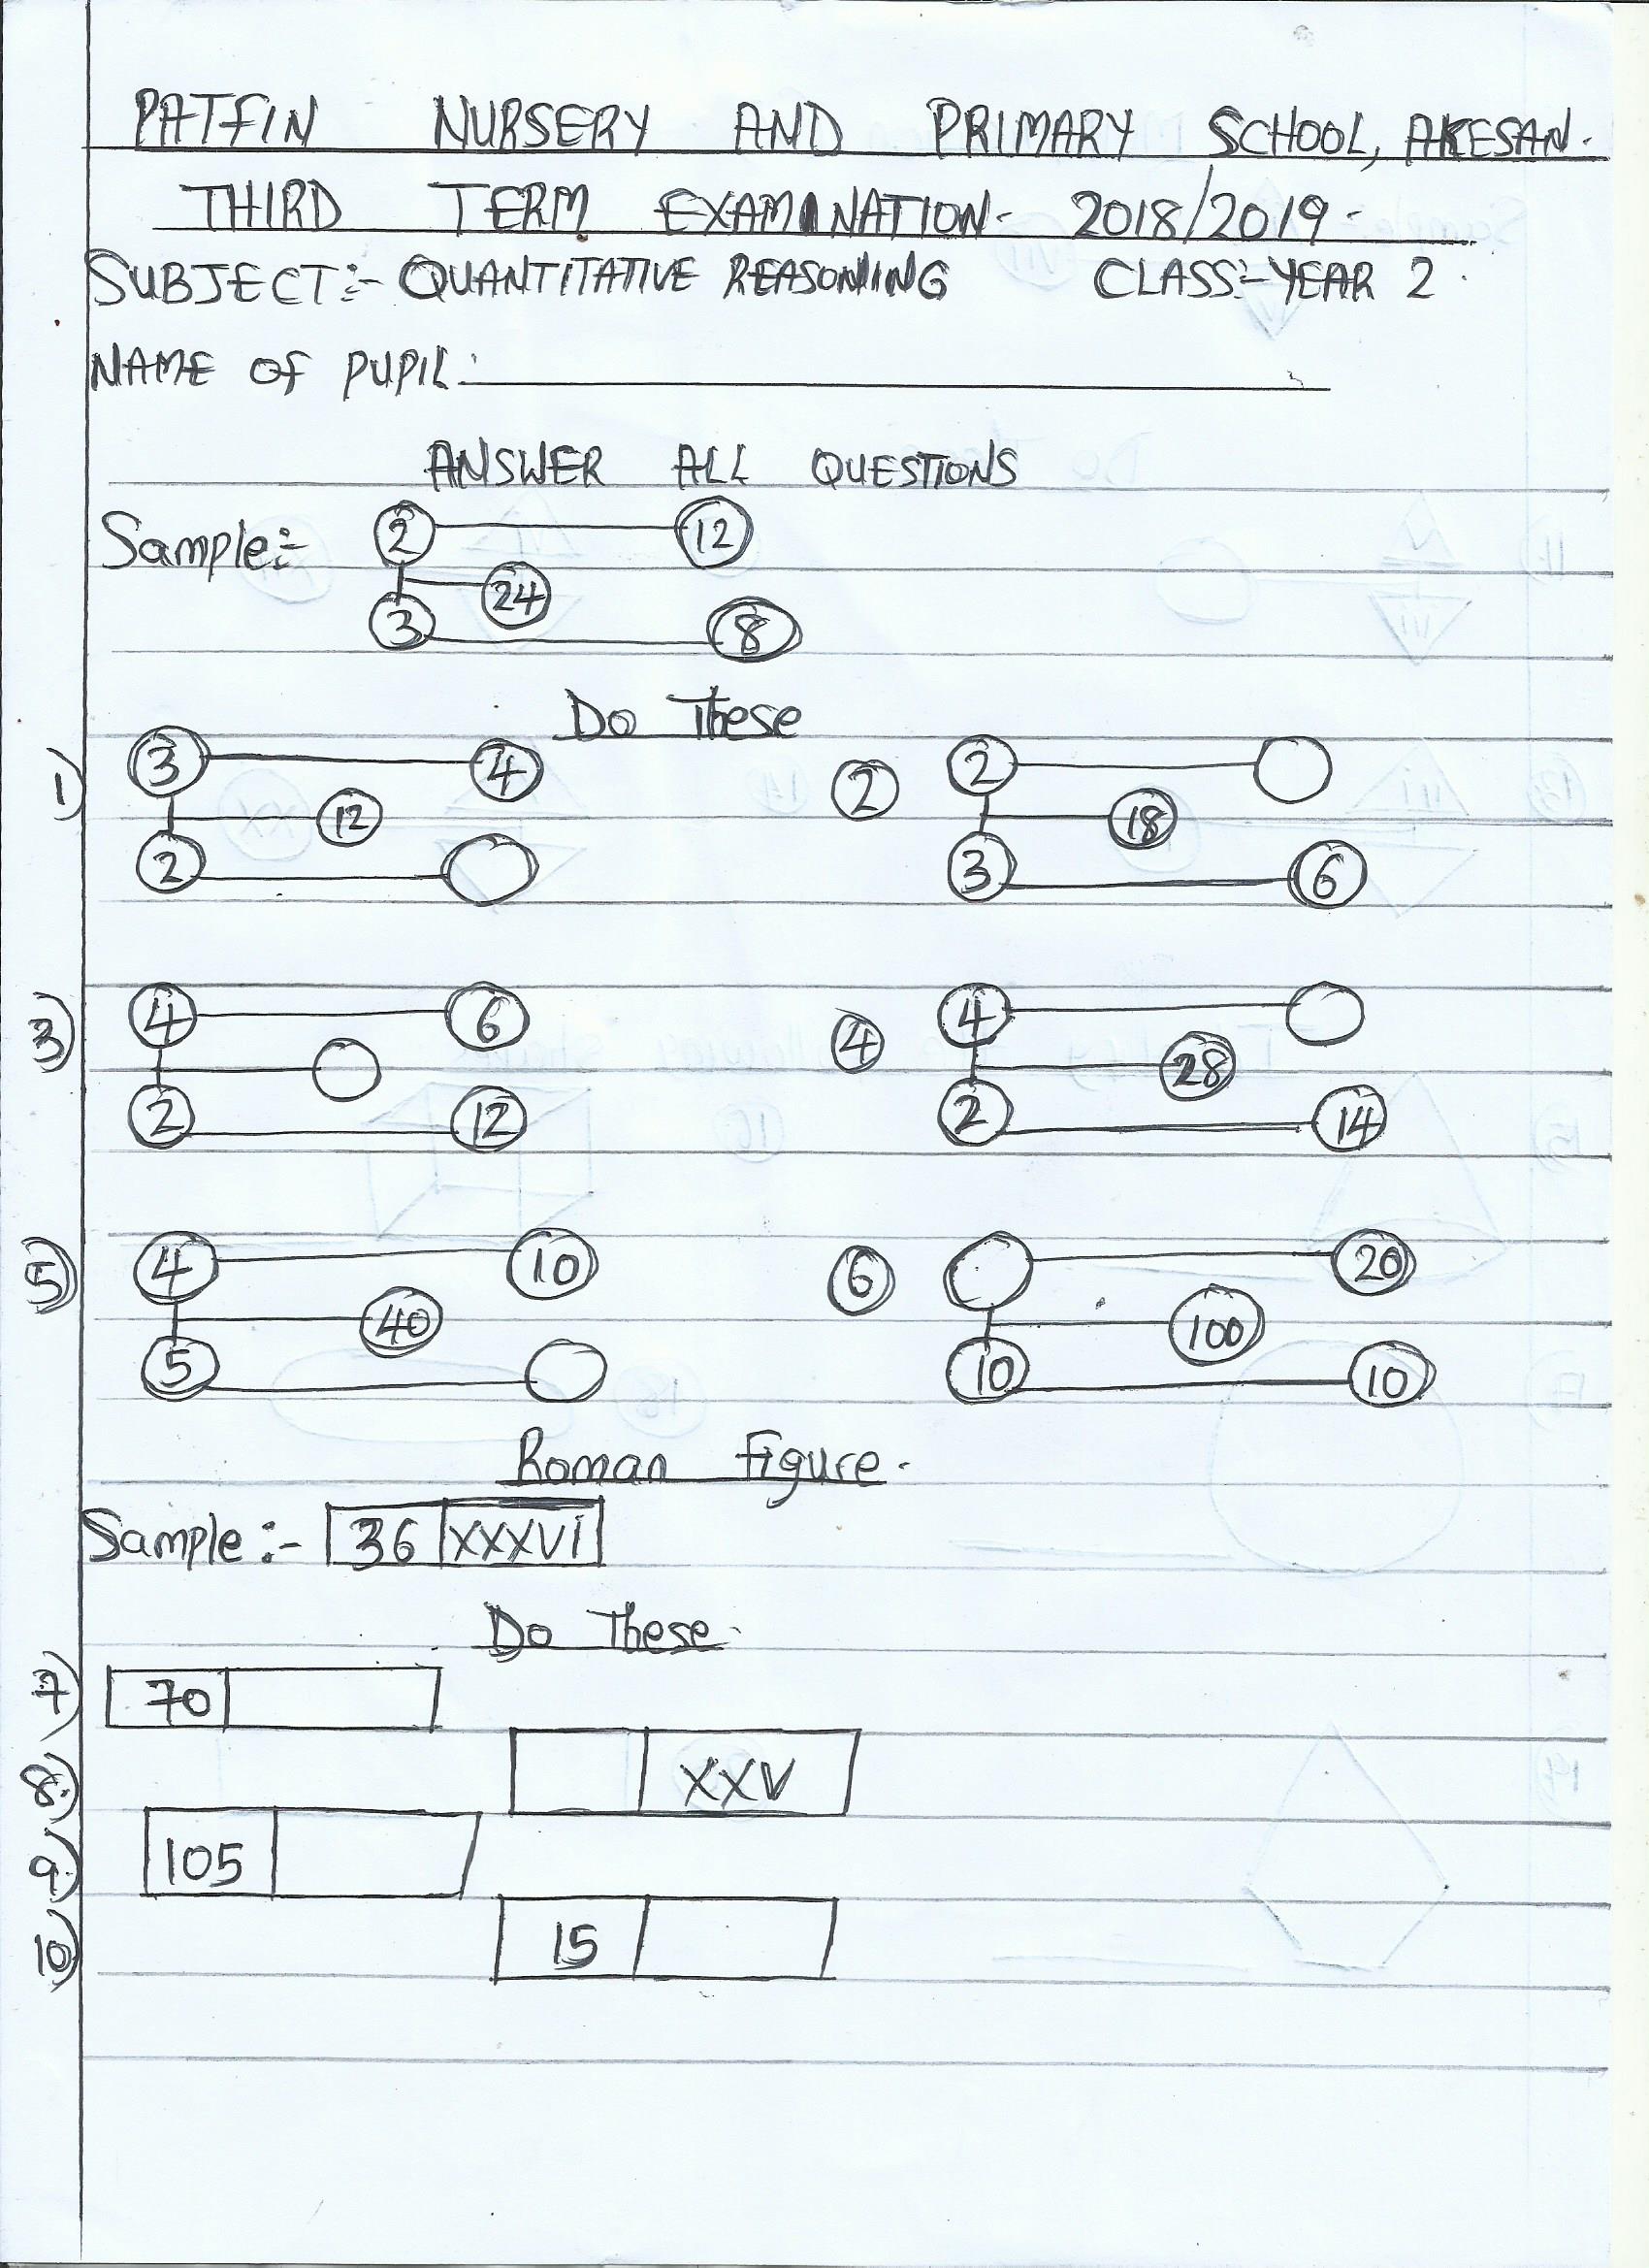 PATFIN NURSERY AND PRIMARY SCHOOL, AKESAN.
THIRD TERM EXAMINATION- 2018/2019-
SUBJECT:- QUANTITATIVE REASONING CLASS:- YEAR 2.
NAME OF PUPIL:
ANSWER ALL QUESTIONS
Sample:- 2 12
24
3 8
Do These
1) 3 4 2 2
12 18
2 3 6
3) 4 6 4 4
28
2 12 2 14
5) 4 10 6 20
40 100
5 10 10
Roman Figure.
Sample:- 36 XXXVI
Do These.
7) 70
8) XXV
9) 105
10) 15